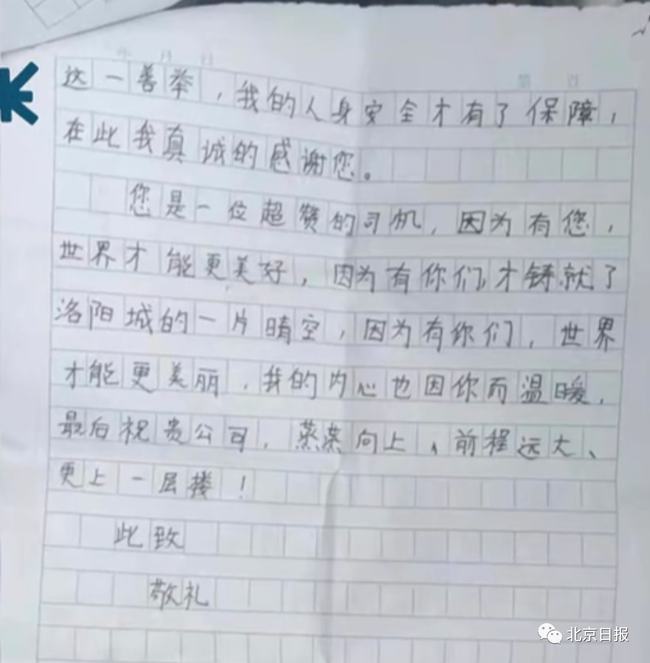 年 月 日
第 页
这一善举，我的人身安全才有了保障，
在此我真诚的感谢您。
您是一位超赞的司机，因为有您，
世界才能更美好，因为有你们才铸就了
洛阳城的一片晴空，因为有你们，世界
才能更美丽，我的内心也因你而温暖，
最后祝贵公司，蒸蒸向上、前程远大、
更上一层楼！
此致
敬礼
北京日报